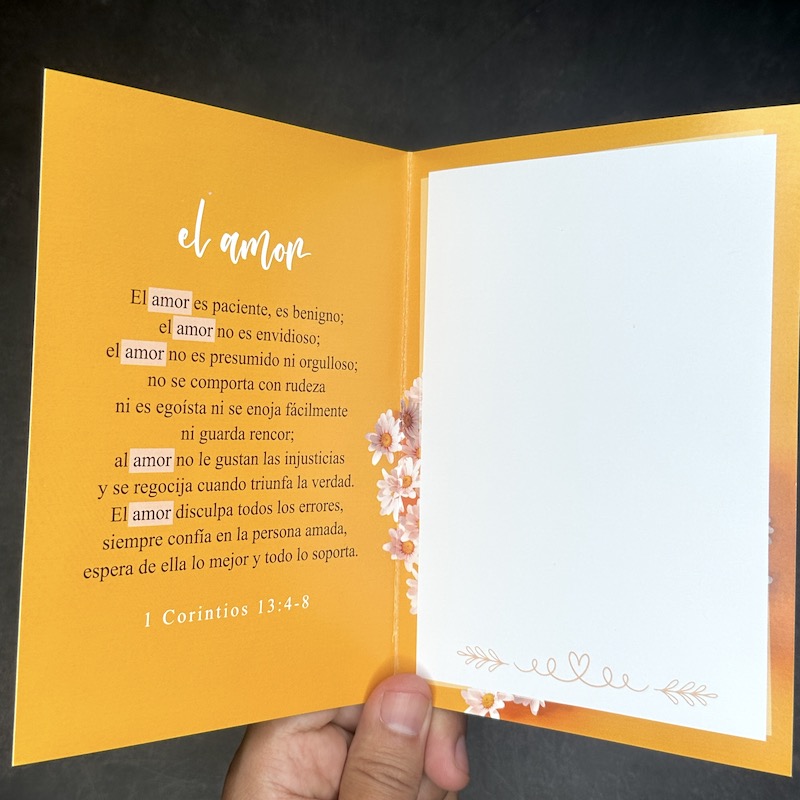 el amor
El amor es paciente, es benigno;
el amor no es envidioso;
el amor no es presumido ni orgulloso;
no se comporta con rudeza
ni es egoísta ni se enoja fácilmente
ni guarda rencor;
al amor no le gustan las injusticias
y se regocija cuando triunfa la verdad.
El amor disculpa todos los errores,
siempre confía en la persona amada,
espera de ella lo mejor y todo lo soporta.
1 Corintios 13:4-8